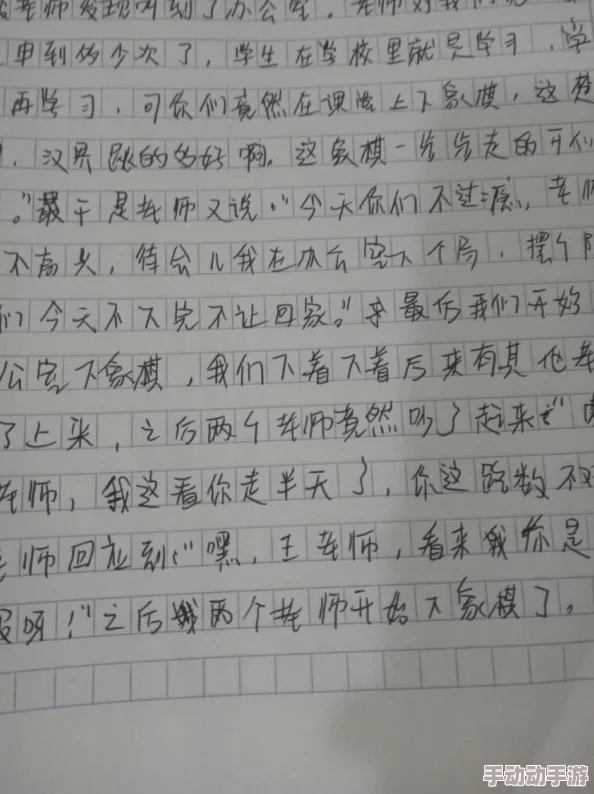 老师发现叫到了办公室。老师对我们说
申到多少次了，学生在学校里就是学习，学
再学习，可你们竟然在课堂上下象棋，这楚
汉界跳的多好啊。这象棋一步步走的
。"最于是老师又说："今天你们不过瘾，老师
不高兴，待会儿我在办公室下个局，摆个
们今天不下完不让回家。"来最后我们开始
公室下象棋，我们下着下着后来有其他老
了上来，之后两个老师竟然吵了起来："
老师，我这看你走半天了，你这路数不对
老师回应到："嘿，王老师，看来我你是
呀！"之后两个老师开始下象棋了。
手动动手游